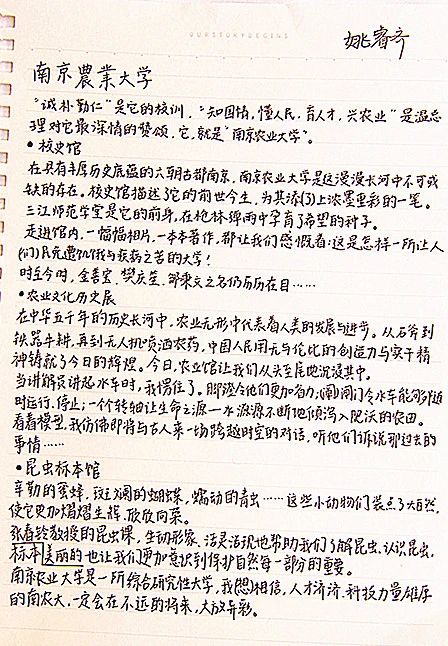 OURSTORYBEGINS
姚睿齐
南京農業大学
“诚朴勤仁”是它的校训，“知国情，懂人民，育人才，兴农业”是温总
理对它最深情的赞颂。它，就是“南京农业大学”。
• 校史馆
在具有丰厚历史底蕴的六朝古都南京，南京农业大学是这漫漫长河中不可或
缺的存在。校史馆描述了它的前世今生，为其添(了)上浓墨重彩的一笔。
三江师范学堂是它的前身，在枪林弹雨中孕育了希望的种子。
走进馆内，一幅幅相片，一本本著作，都让我们感慨着：这是怎样一所让人
们免遭饥饿与疾苦的大学！
时至今时，金善宝，樊庆笙，邹秉文之名仍历历在目……
• 农业文化历史展
在中华五千年的历史长河中，农业无形中代表着人类的发展与进步。从石斧到
铁器牛耕，再到无人机喷洒农药，中国人民用无与伦比的创造力与实干精
神铸就了今日的辉煌。今日，农业馆让我们从头至尾地沉浸其中。
当讲解员讲起水车时，我愣住了。脚踏令他们更加省力；闸门令水车能够随
时运行、停止；一个转轴让生命之源—水源源不断地倾泻入肥沃的农田。
看着模型，我仿佛即将与古人来一场跨越时空的对话，听他们诉说那过去的
事情……
• 昆虫标本馆
辛勤的蜜蜂，斑斓的蝴蝶，蠕动的青虫……这些小动物们装点了大自然，
使它更加熠熠生辉、欣欣向荣。
教授的昆虫课，生动形象、活灵活现地帮助我们了解昆虫、认识昆虫，
标本美丽的也让我们更加意识到保护自然每一部分的重要。
南京农业大学是一所综合研究性大学，我相信，人才济济、科技力量雄厚
的南农大，一定会在不远的将来，大放异彩。